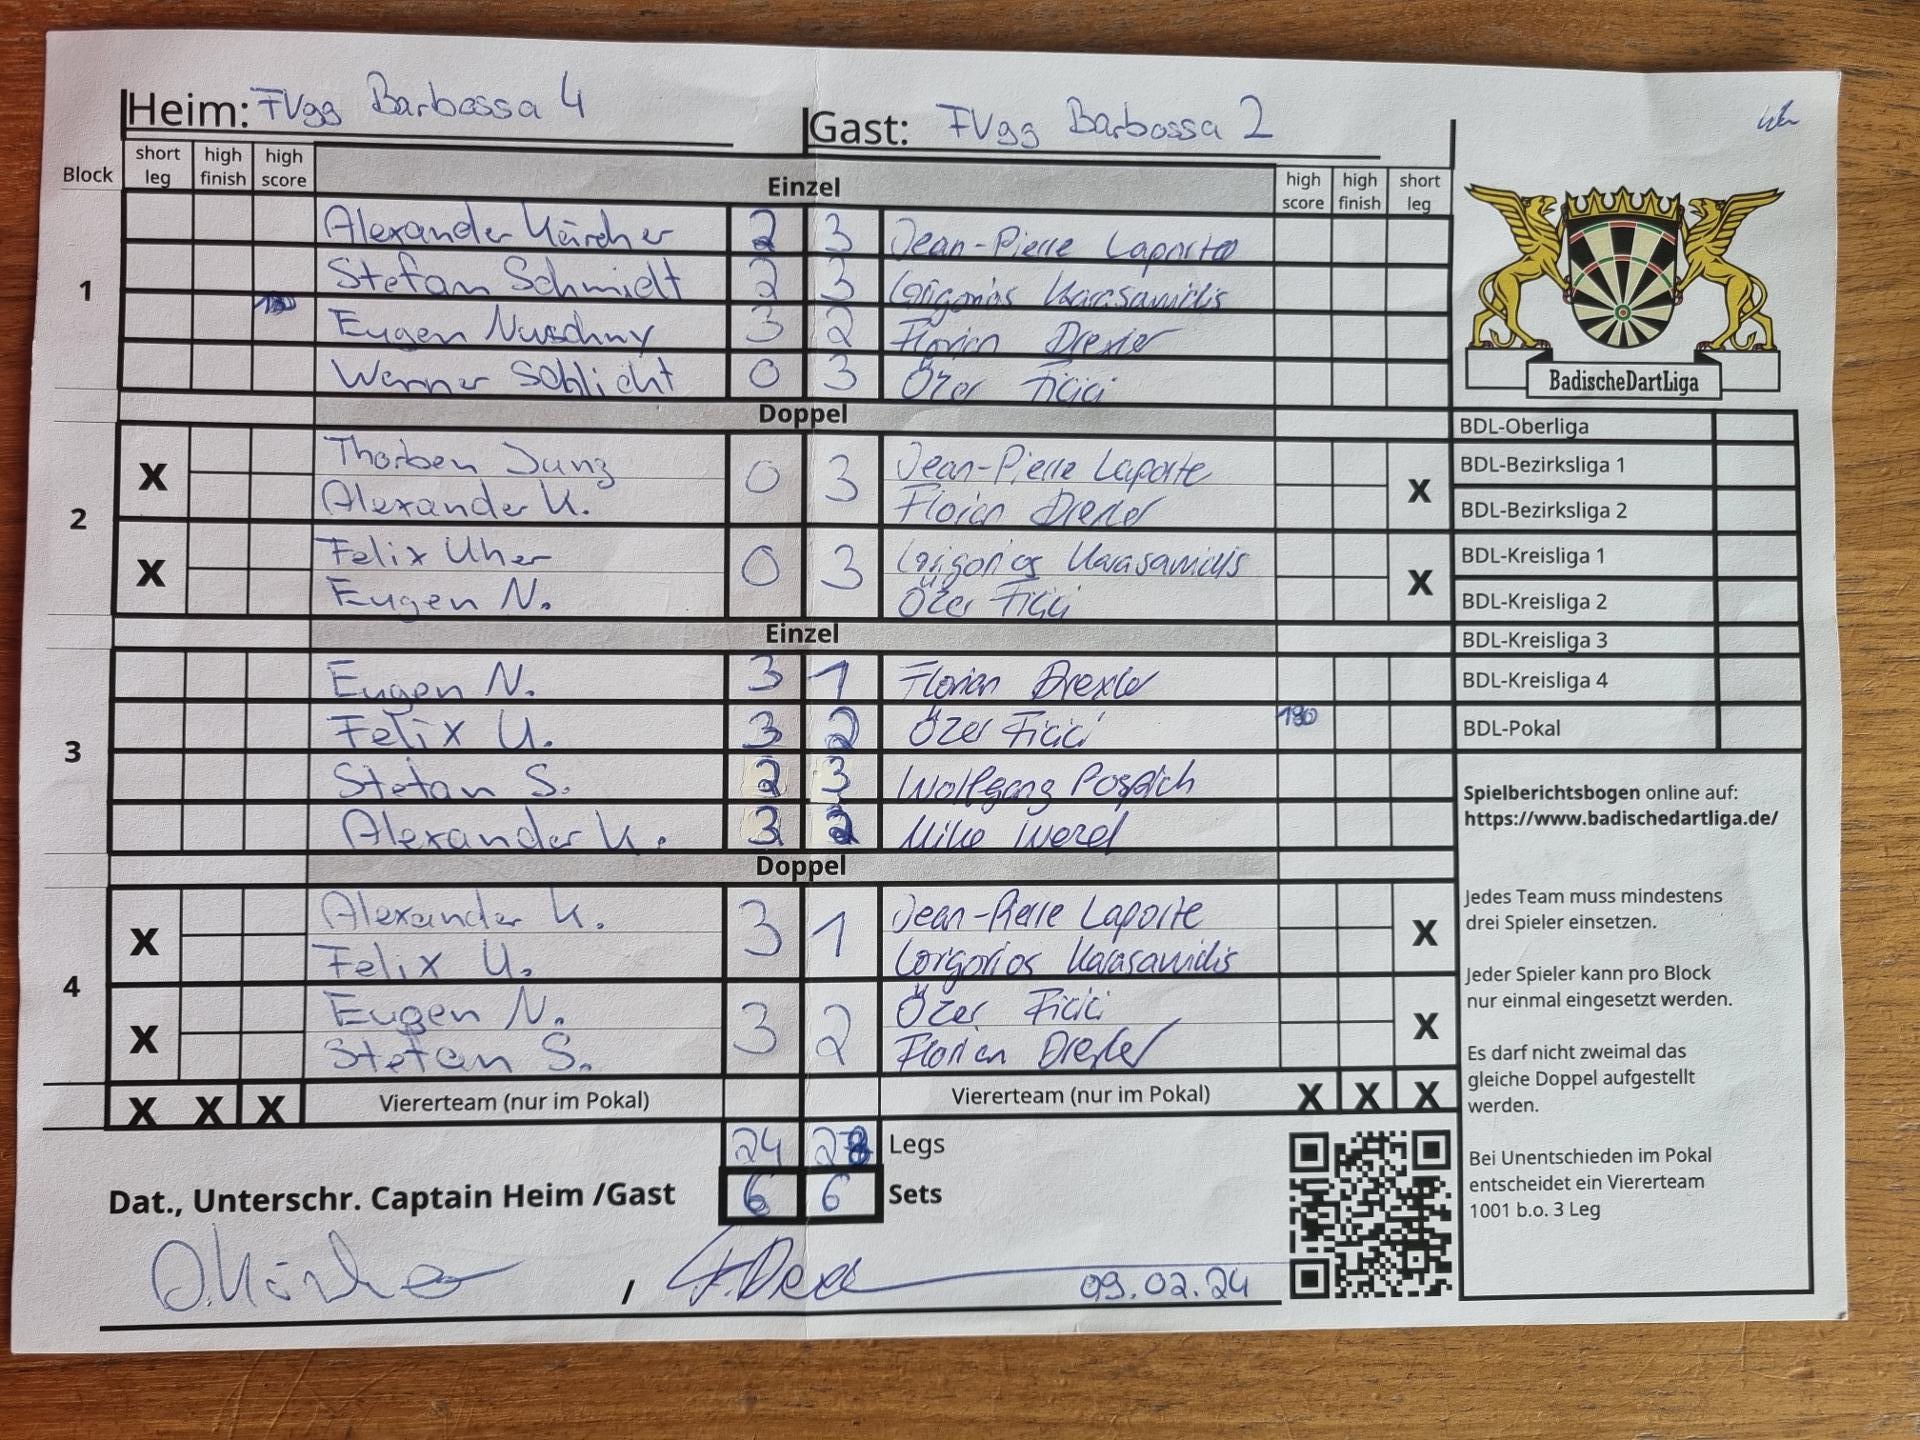 Heim: FVgg Barbossa 4
Gast: FVgg Barbossa 2
Block short leg high finish high score Einzel high score high finish short leg
1
Alexander Kärcher 2 3 Jean-Pierre Laporte
Stefan Schmidt 2 3 Grigorios Karasavidis
Eugen Nuschny 3 2 Florian Drexler
Werner Schlicht 0 3 Özer Ficici
Doppel
2
X Thorben Jung 0 3 Jean-Pierre Laporte X
Alexander K. Florian Drexler
X Felix Uher 0 3 Grigorios Karasavidis X
Eugen N. Özer Ficici
Einzel
3
Eugen N. 3 1 Florian Drexler
Felix U. 3 2 Özer Ficici 180
Stefan S. 2 3 Wolfgang
Alexander K. 3 2 Mike
Doppel
4
X Alexander K. 3 1 Jean-Pierre Laporte X
Felix U. Grigorios Karasavidis
X Eugen N. 3 2 Özer Ficici X
Stefan S. Florian Drexler
X X X Viererteam (nur im Pokal) Viererteam (nur im Pokal) X X X
24 28 Legs
Dat., Unterschr. Captain Heim /Gast 6 6 Sets
/ 09.02.24
BadischeDartLiga
BDL-Oberliga
BDL-Bezirksliga 1
BDL-Bezirksliga 2
BDL-Kreisliga 1
BDL-Kreisliga 2
BDL-Kreisliga 3
BDL-Kreisliga 4
BDL-Pokal
Spielberichtsbogen online auf:
https://www.badischedartliga.de/
Jedes Team muss mindestens
drei Spieler einsetzen.
Jeder Spieler kann pro Block
nur einmal eingesetzt werden.
Es darf nicht zweimal das
gleiche Doppel aufgestellt
werden.
Bei Unentschieden im Pokal
entscheidet ein Viererteam
1001 b.o. 3 Leg